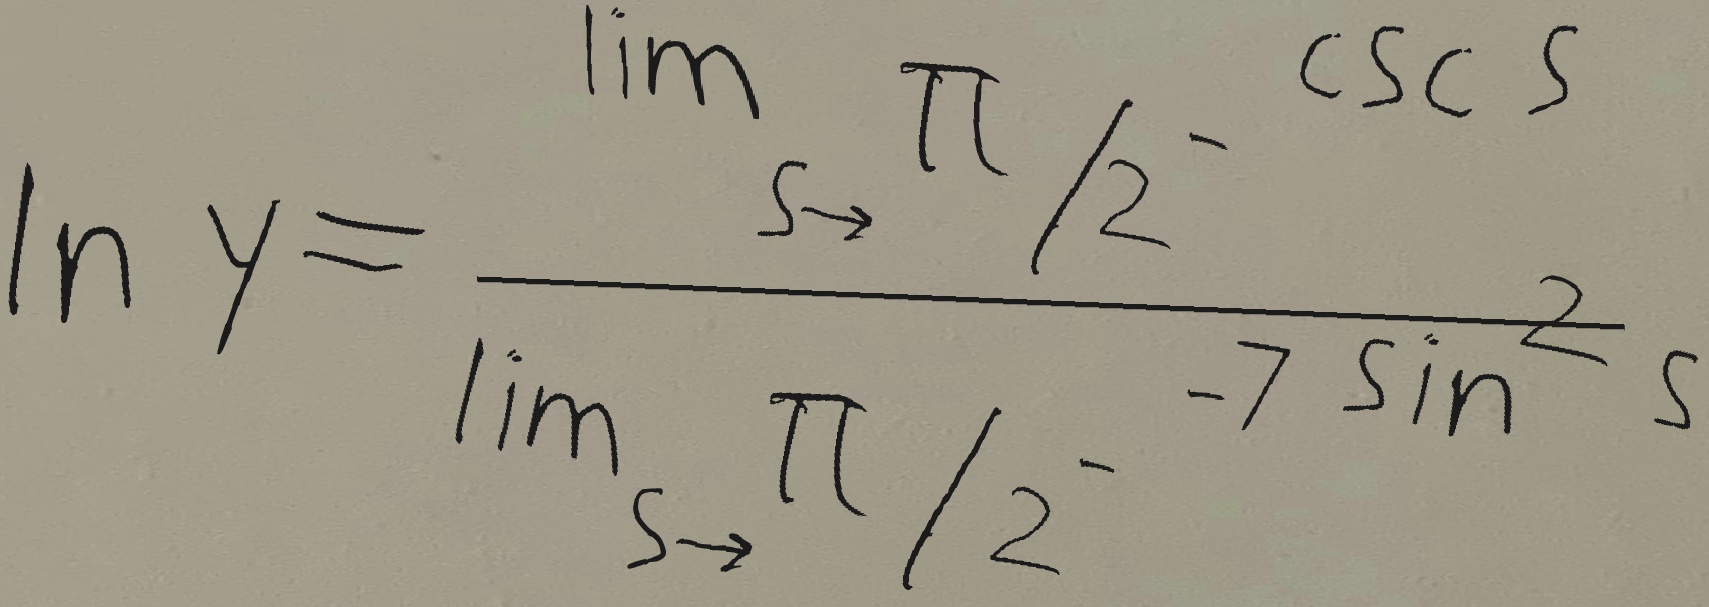 \ln y = \frac{\lim_{s \to \pi/2^-} \csc s}{\lim_{s \to \pi/2^-} -7 \sin^2 s}